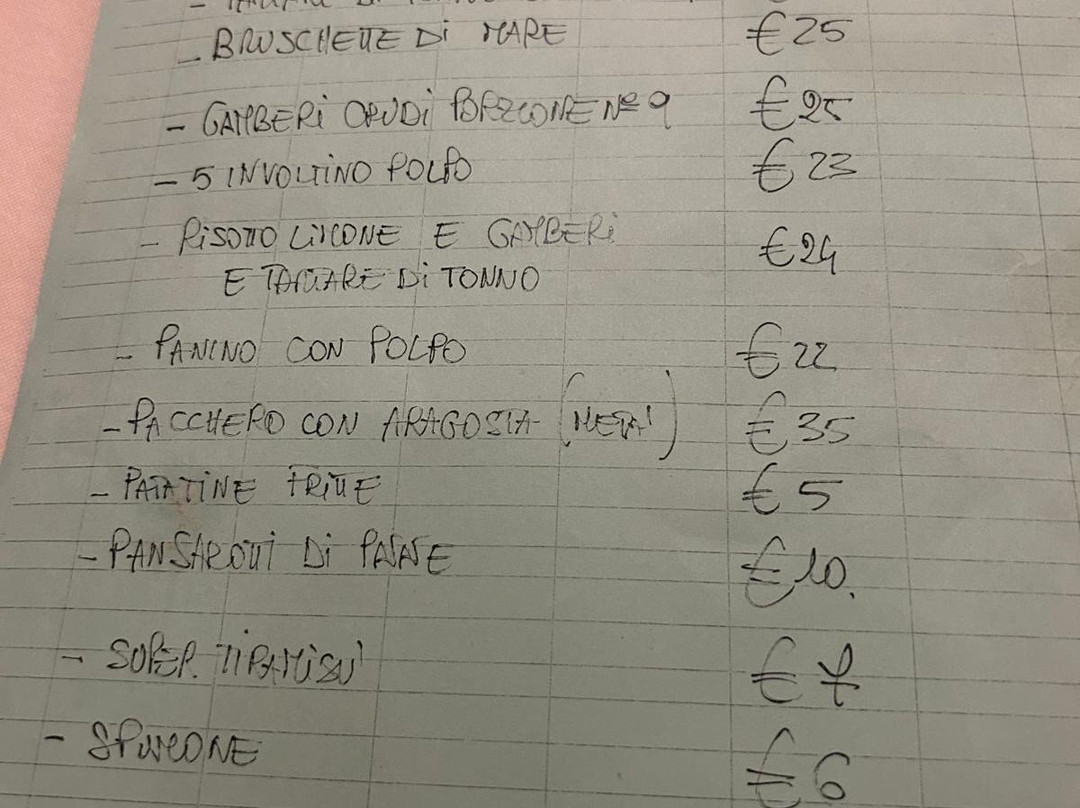 DI TONNO
- BRUSCHETTE DI MARE €25
- GAMBERI CRUDI PORZIONE N° 9 €25
- 5 INVOLTINO POLPO €23
- RISOTTO LIMONE E GAMBERI
E TARTARE DI TONNO €24
- PANINO CON POLPO €22
- PACCHERO CON ARAGOSTA (METÀ) €35
- PATATINE FRITTE €5
- PANSAROTTI DI PATATE €10.
- SUPER TIRAMISU' €7
- SPUMONE €6